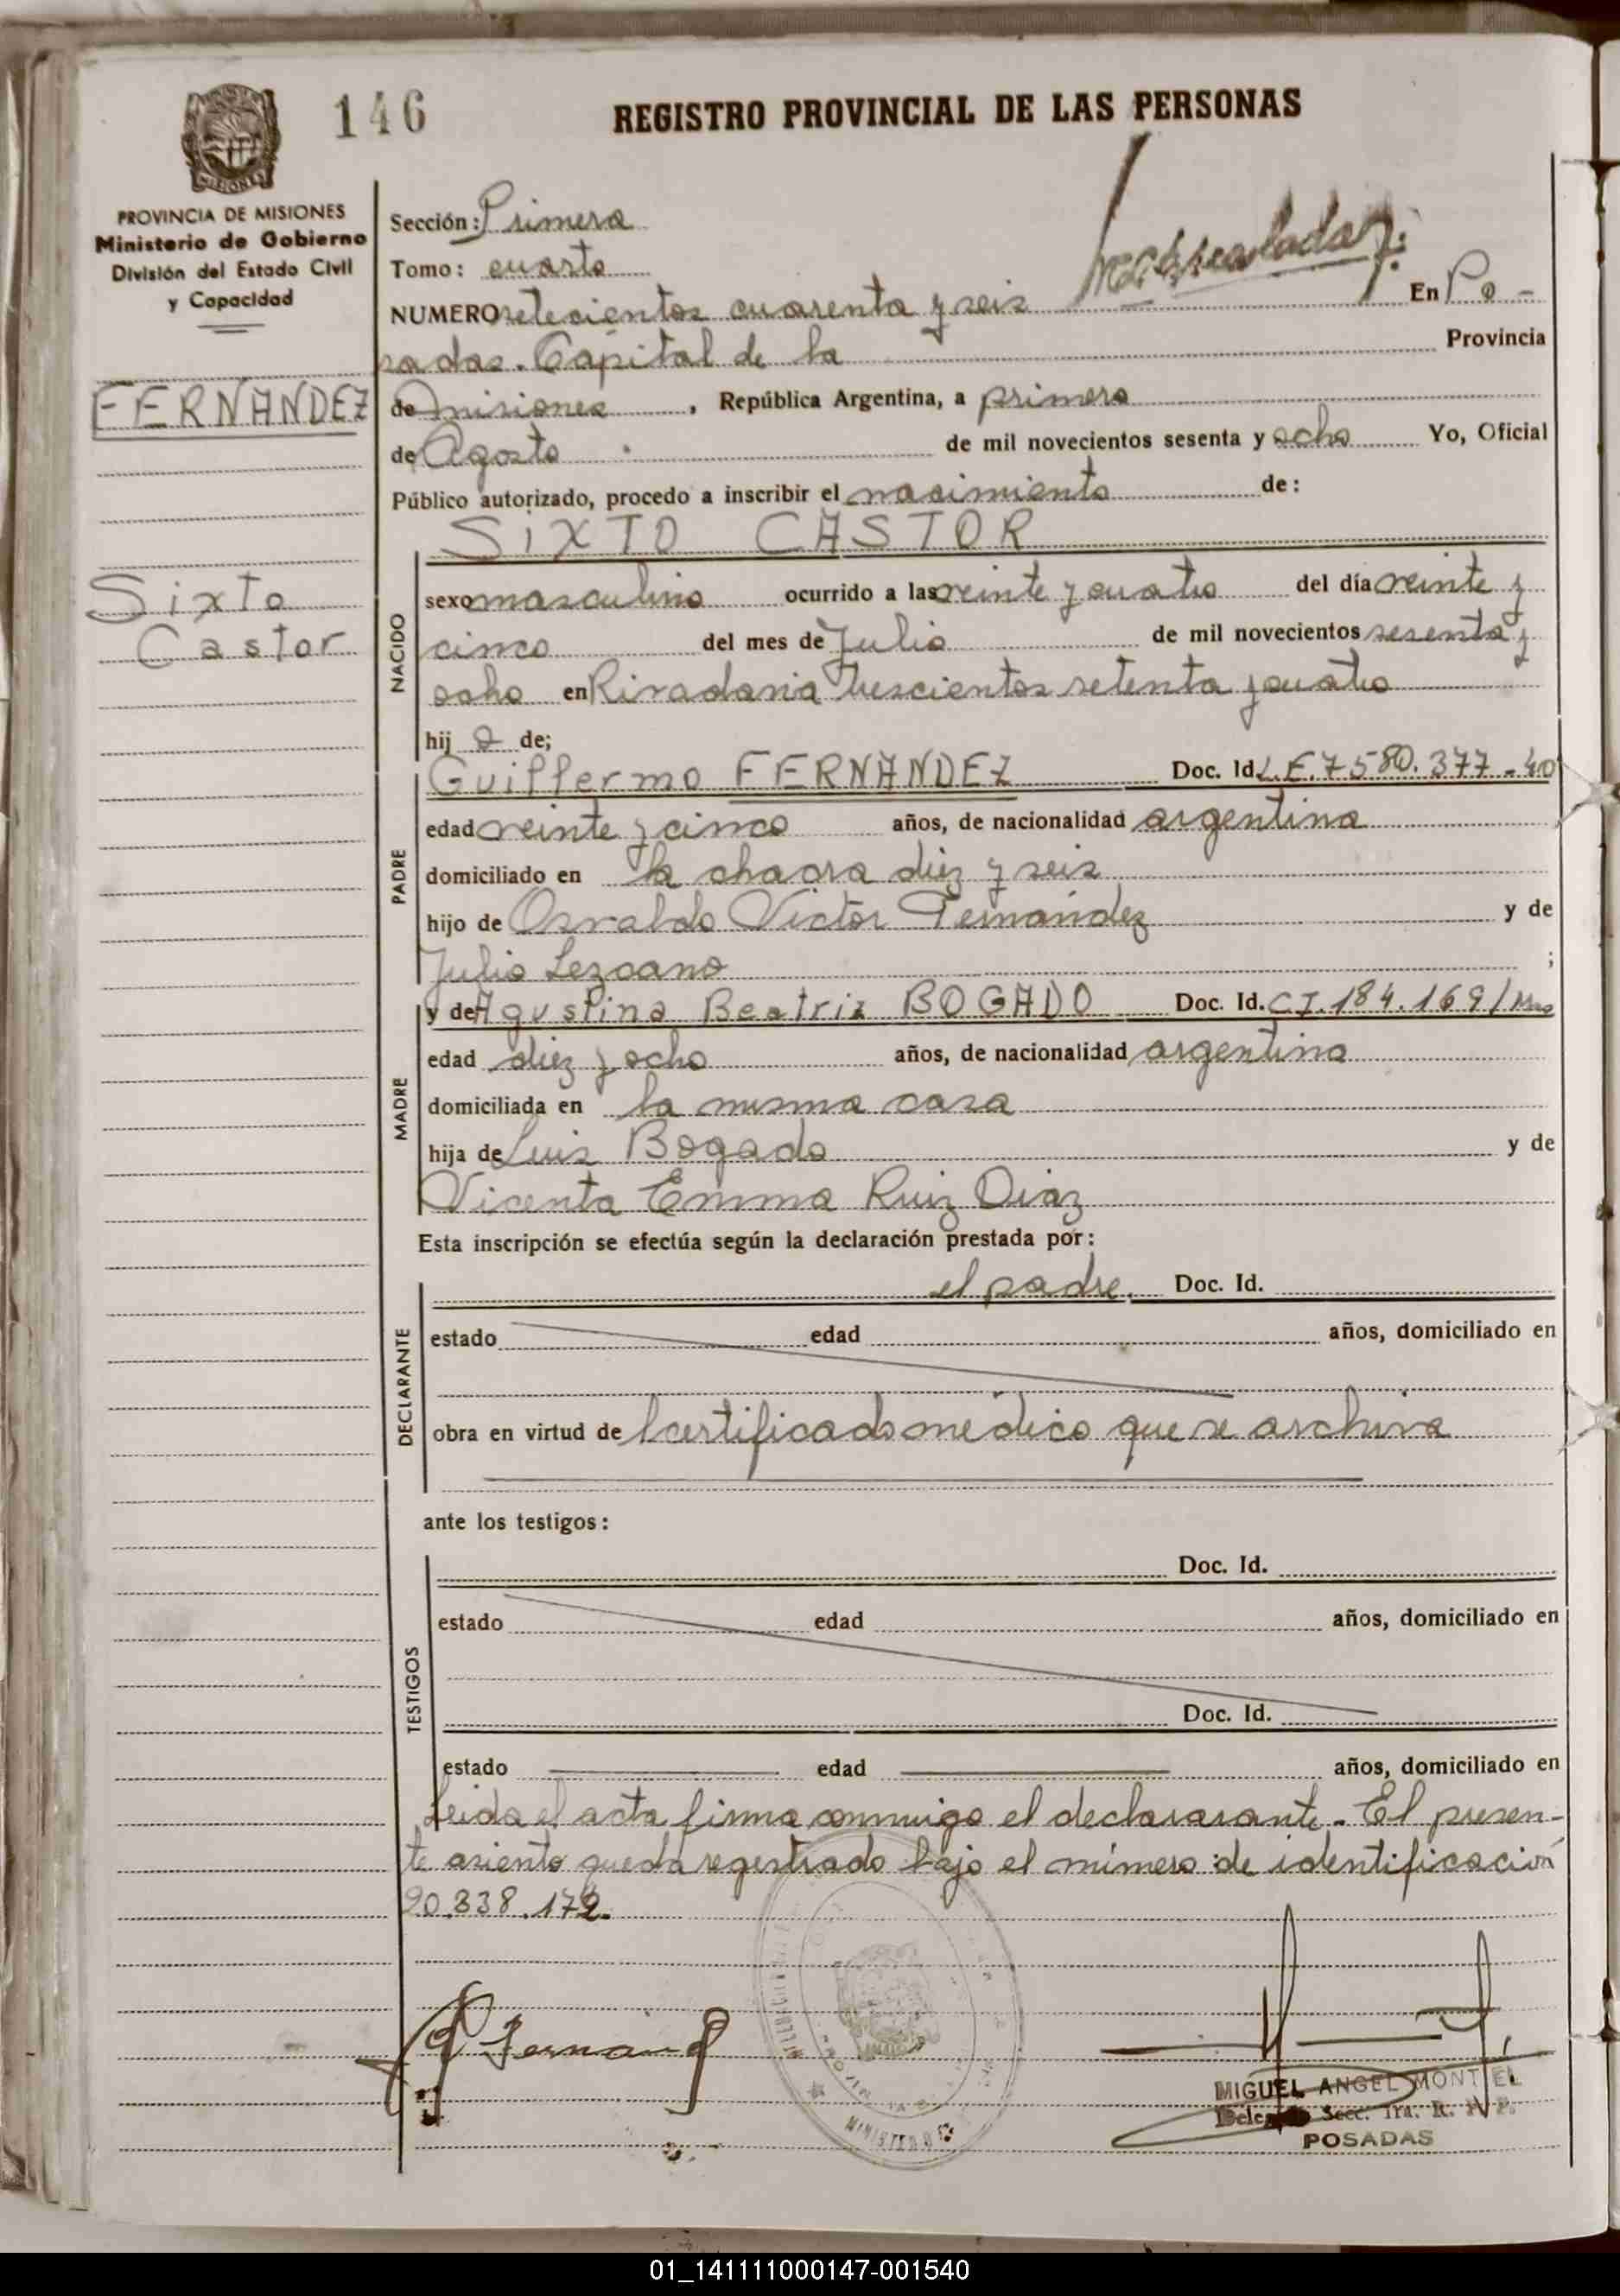 146
REGISTRO PROVINCIAL DE LAS PERSONAS
MISIONES
PROVINCIA DE MISIONES
Ministerio de Gobierno
División del Estado Civil
y Capacidad
FERNANDEZ
Sixto
Castor
Sección: Primera
Tomo: cuarto
NUMERO setecientos cuarenta y seis En Po-
sadas. Capital de la Provincia
de misiones, República Argentina, a primero
de Agosto de mil novecientos sesenta y ocho Yo, Oficial
Público autorizado, procedo a inscribir el nacimiento de:
SIXTO CASTOR
NACIDO
sexo masculino ocurrido a las veinte y cuatro del día veinte y
cinco del mes de Julio de mil novecientos sesenta y
ocho en Rivadavia trescientos setenta y cuatro
hij o de;
PADRE
Guillermo FERNANDEZ Doc. Id. L.E. 7580.377-40
edad veinte y cinco años, de nacionalidad argentina
domiciliado en la chacra diez y seis
hijo de Osvaldo Victor Fernandez y de
Julia Lezcano ;
MADRE
y de Agustina Beatriz BOGADO Doc. Id. C.I. 184.169/Mns
edad diez y ocho años, de nacionalidad argentina
domiciliada en la misma casa
hija de Luis Bogado y de
Vicenta Emma Ruiz Diaz
Esta inscripción se efectúa según la declaración prestada por:
DECLARANTE
el padre. Doc. Id.
estado edad años, domiciliado en
obra en virtud de certificado médico que se archiva
ante los testigos:
TESTIGOS
Doc. Id.
estado edad años, domiciliado en
Doc. Id.
estado edad años, domiciliado en
Leida el acta firma conmigo el declarante. El presen-
te asiento queda registrado bajo el número de identificación
20.338.172.
MINISTERIO
MIGUEL ANGEL MONTIEL
Secc. 1ra. R. P. P.
POSADAS
01_141111000147-001540